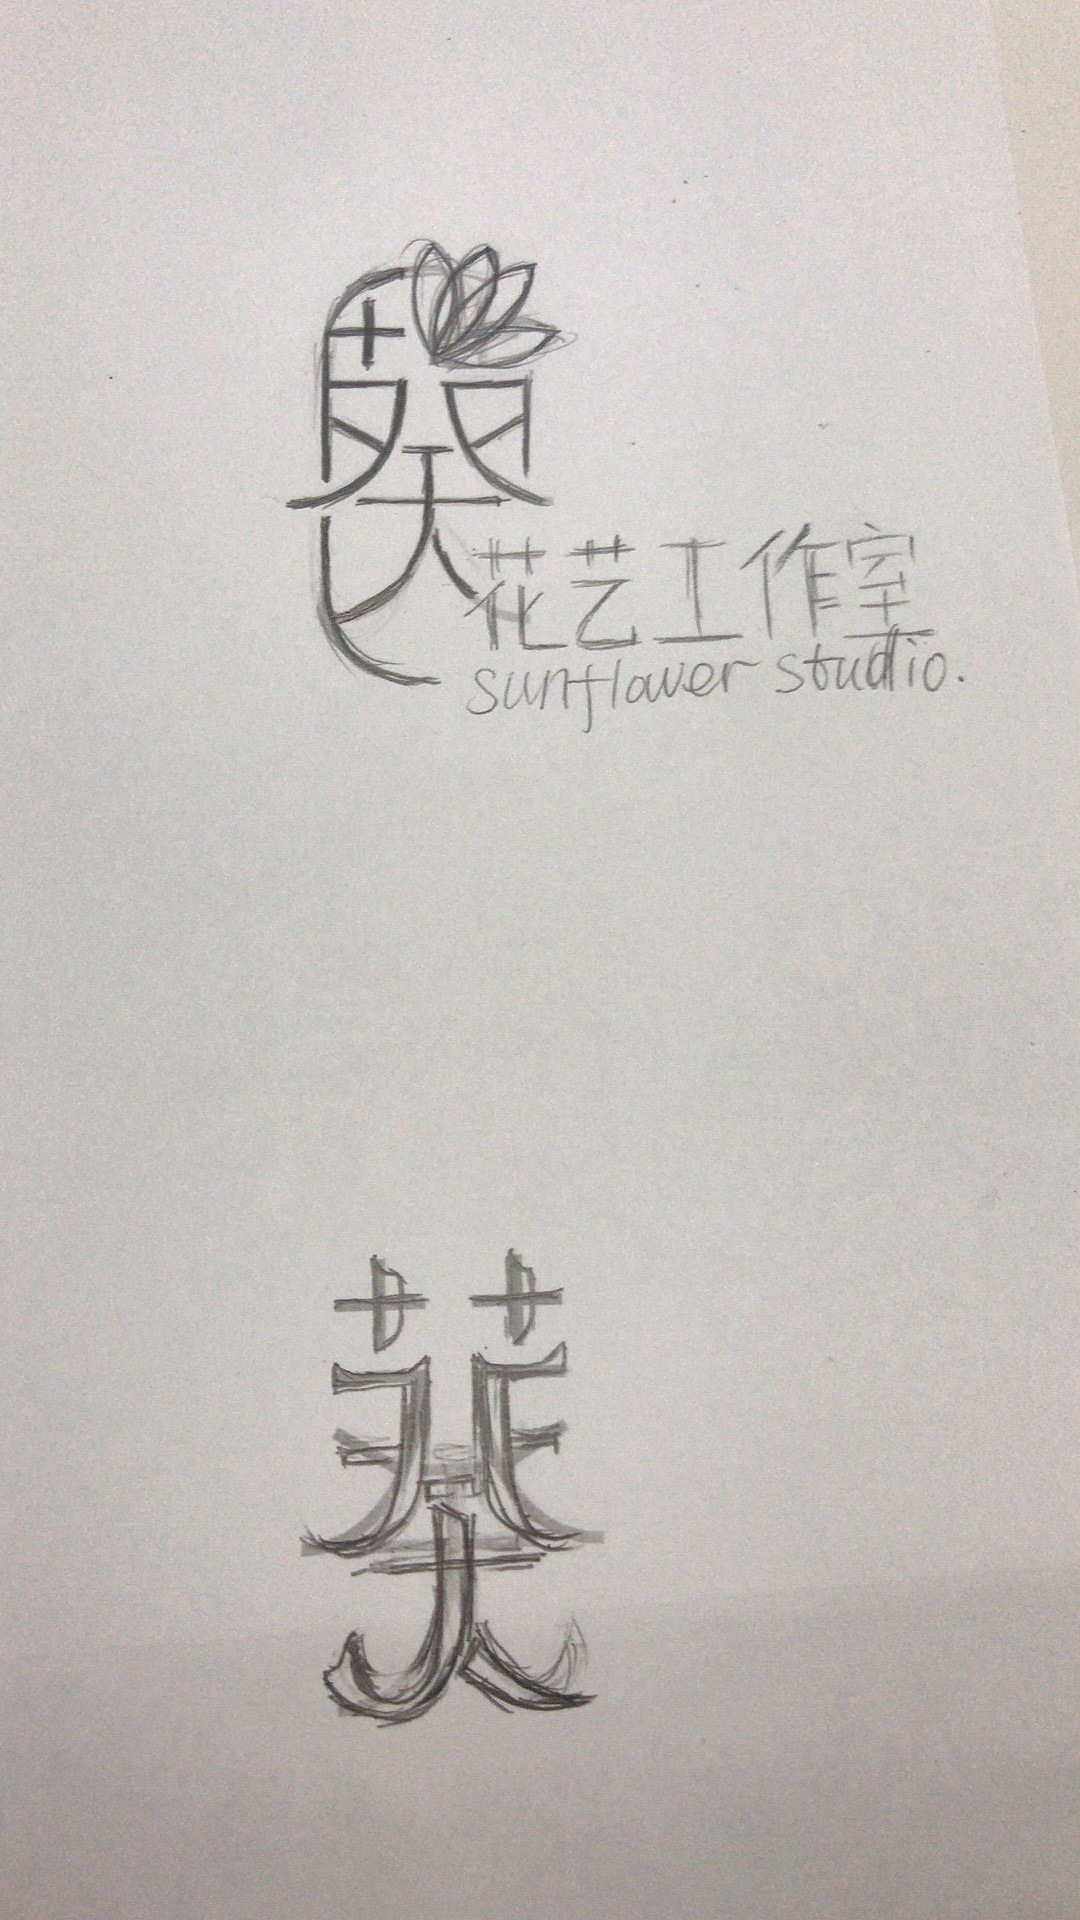 葵
花艺工作室
sunflower studio.
葵